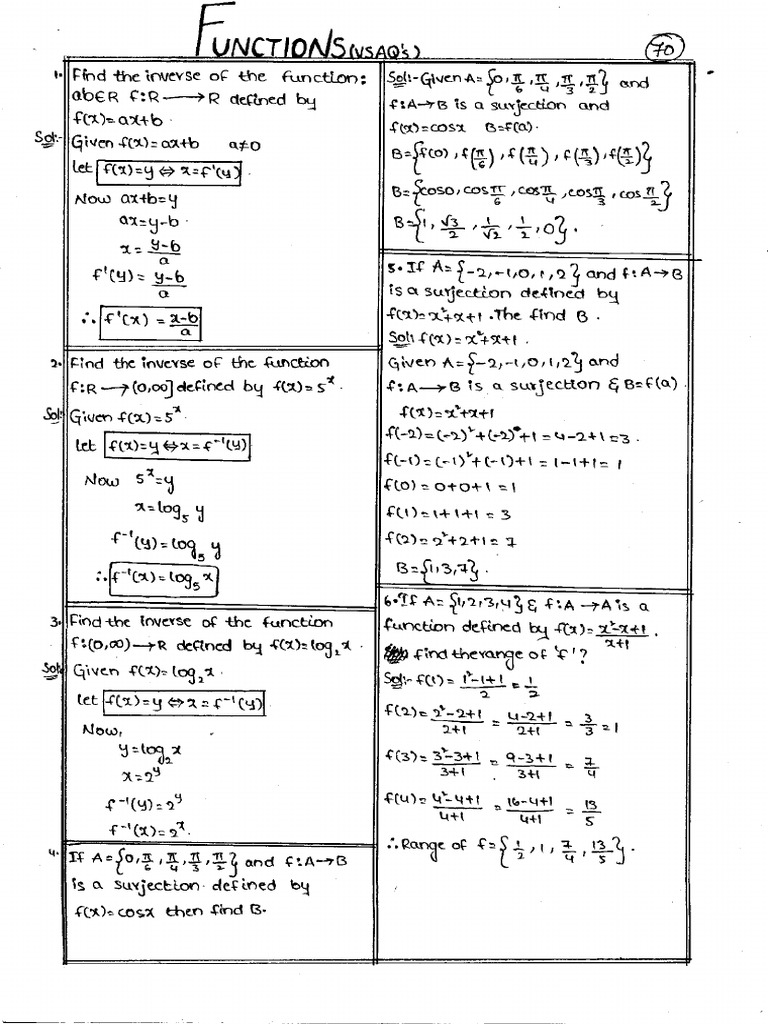 FUNCTIONS (VSAQ's)
70
1. Find the inverse of the function:
ab∈R f:R⟶R defined by
f(x)=ax+b.
Sol:- Given f(x)=ax+b a≠0
let f(x)=y ⇔ x=f'(y)
Now ax+b=y
ax=y-b.
x = y-b/a
f'(y) = y-b/a
∴ f'(x) = x-b/a
2. Find the inverse of the function
f:R ⟶(0,∞] defined by f(x)=5ˣ.
Sol: Given f(x)=5ˣ.
let f(x)=y ⇔ x=f⁻¹(y)
Now 5ˣ=y
x=log₅ y
f⁻¹(y)=log₅ y
∴ f⁻¹(x)=log₅ x
3. Find the inverse of the function
f:(0,∞) ⟶R defined by f(x)=log₂x.
Sol: Given f(x)=log₂x.
let f(x)=y ⇔ x=f⁻¹(y)
Now,
y=log₂x
x=2ʸ
f⁻¹(y)=2ʸ
f⁻¹(x)=2ˣ.
4. If A={0,π/6,π/4,π/3,π/2} and f:A→B
is a surjection defined by
f(x)=cosx then find B.
Sol:- Given A={0,π/6,π/4,π/3,π/2} and
f:A→B is a surjection and
f(x)=cosx B=f(a).
B={f(0), f(π/6), f(π/4), f(π/3), f(π/2)}
B={cos0, cosπ/6, cosπ/4, cosπ/3, cosπ/2}
B={1, √3/2, 1/√2, 1/2, 0}.
5. If A={-2,-1,0,1,2} and f:A→B
is a surjection defined by
f(x)=x²+x+1. The find B.
Sol: f(x)=x²+x+1.
Given A={-2,-1,0,1,2} and
f:A⟶B is a surjection & B=f(a).
f(x)=x²+x+1
f(-2)=(-2)²+(-2)+1=4-2+1=3.
f(-1)=(-1)²+(-1)+1=1-1+1=1
f(0)=0+0+1=1
f(1)=1+1+1=3
f(2)=2²+2+1=7
B={1,3,7}.
6. If A={1,2,3,4} & f:A→A is a
function defined by f(x)=x²-x+1/x+1.
find the range of 'f'?
Sol:- f(1)=1²-1+1/2=1/2
f(2)=2²-2+1/2+1=4-2+1/2+1=3/3=1
f(3)=3²-3+1/3+1=9-3+1/3+1=7/4
f(4)=4²-4+1/4+1=16-4+1/4+1=13/5
∴ Range of f={1/2,1,7/4,13/5}.